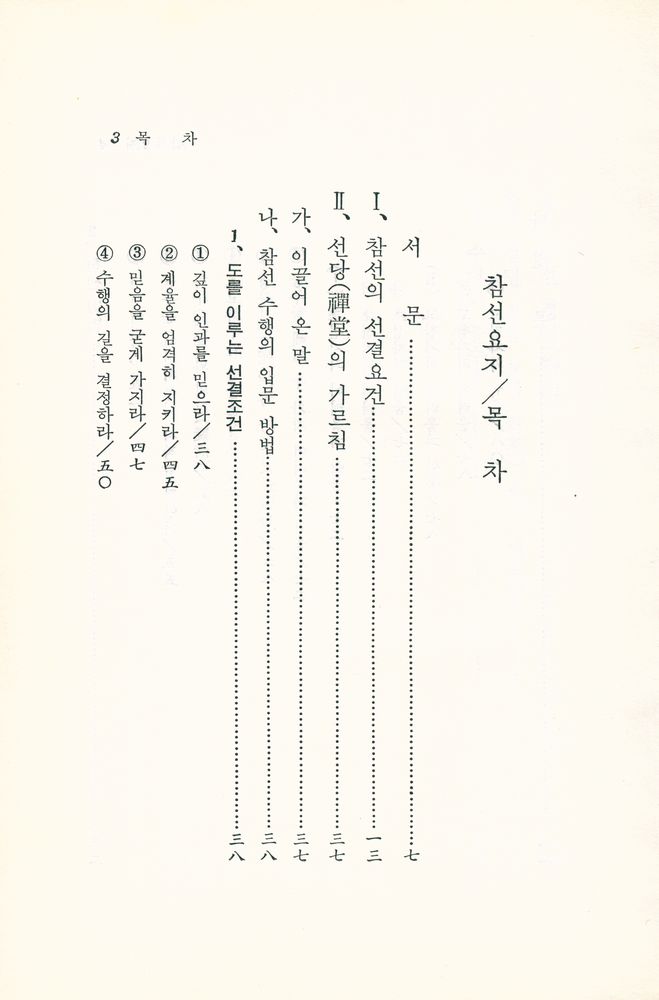 3 목 차
참선요지／목 차
서 문 …… 七
Ⅰ、참선의 선결요건 …… 一三
Ⅱ、선당(禪堂)의 가르침 …… 三七
가、이끌어 온 말 …… 三七
나、참선 수행의 입문 방법 …… 三八
1、도를 이루는 선결조건 …… 三八
① 깊이 인과를 믿으라／三八
② 계율을 엄격히 지키라／四五
③ 믿음을 굳게 가지라／四七
④ 수행의 길을 결정하라／五〇